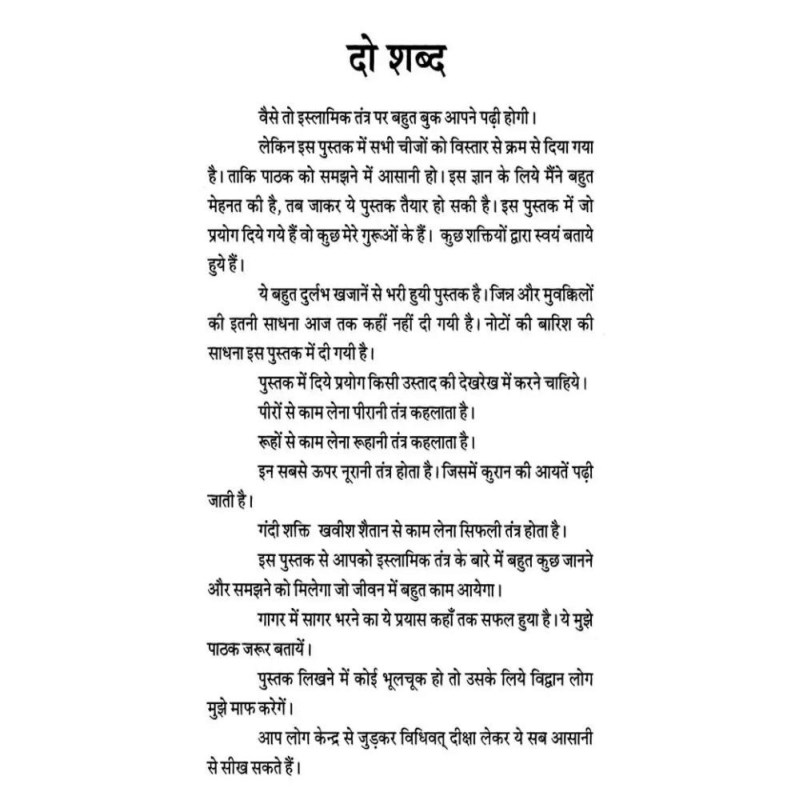 दो शब्द
वैसे तो इस्लामिक तंत्र पर बहुत बुक आपने पढ़ी होगी।
लेकिन इस पुस्तक में सभी चीजों को विस्तार से क्रम से दिया गया
है। ताकि पाठक को समझने में आसानी हो। इस ज्ञान के लिये मैंने बहुत
मेहनत की है, तब जाकर ये पुस्तक तैयार हो सकी है। इस पुस्तक में जो
प्रयोग दिये गये हैं वो कुछ मेरे गुरूओं के हैं। कुछ शक्तियों द्वारा स्वयं बताये
हुये हैं।
ये बहुत दुर्लभ खजानें से भरी हुयी पुस्तक है। जिन्न और मुवक्किलों
की इतनी साधना आज तक कहीं नहीं दी गयी है। नोटों की बारिश की
साधना इस पुस्तक में दी गयी है।
पुस्तक में दिये प्रयोग किसी उस्ताद की देखरेख में करने चाहिये।
पीरों से काम लेना पीरानी तंत्र कहलाता है।
रूहों से काम लेना रूहानी तंत्र कहलाता है।
इन सबसे ऊपर नूरानी तंत्र होता है। जिसमें कुरान की आयतें पढ़ी
जाती है।
गंदी शक्ति खवीश शैतान से काम लेना सिफली तंत्र होता है।
इस पुस्तक से आपको इस्लामिक तंत्र के बारे में बहुत कुछ जानने
और समझने को मिलेगा जो जीवन में बहुत काम आयेगा।
गागर में सागर भरने का ये प्रयास कहाँ तक सफल हुया है। ये मुझे
पाठक जरूर बतायें।
पुस्तक लिखने में कोई भूलचूक हो तो उसके लिये विद्वान लोग
मुझे माफ करेगें।
आप लोग केन्द्र से जुड़कर विधिवत् दीक्षा लेकर ये सब आसानी
से सीख सकते हैं।